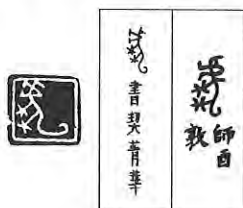 師酉
敦
書契菁華